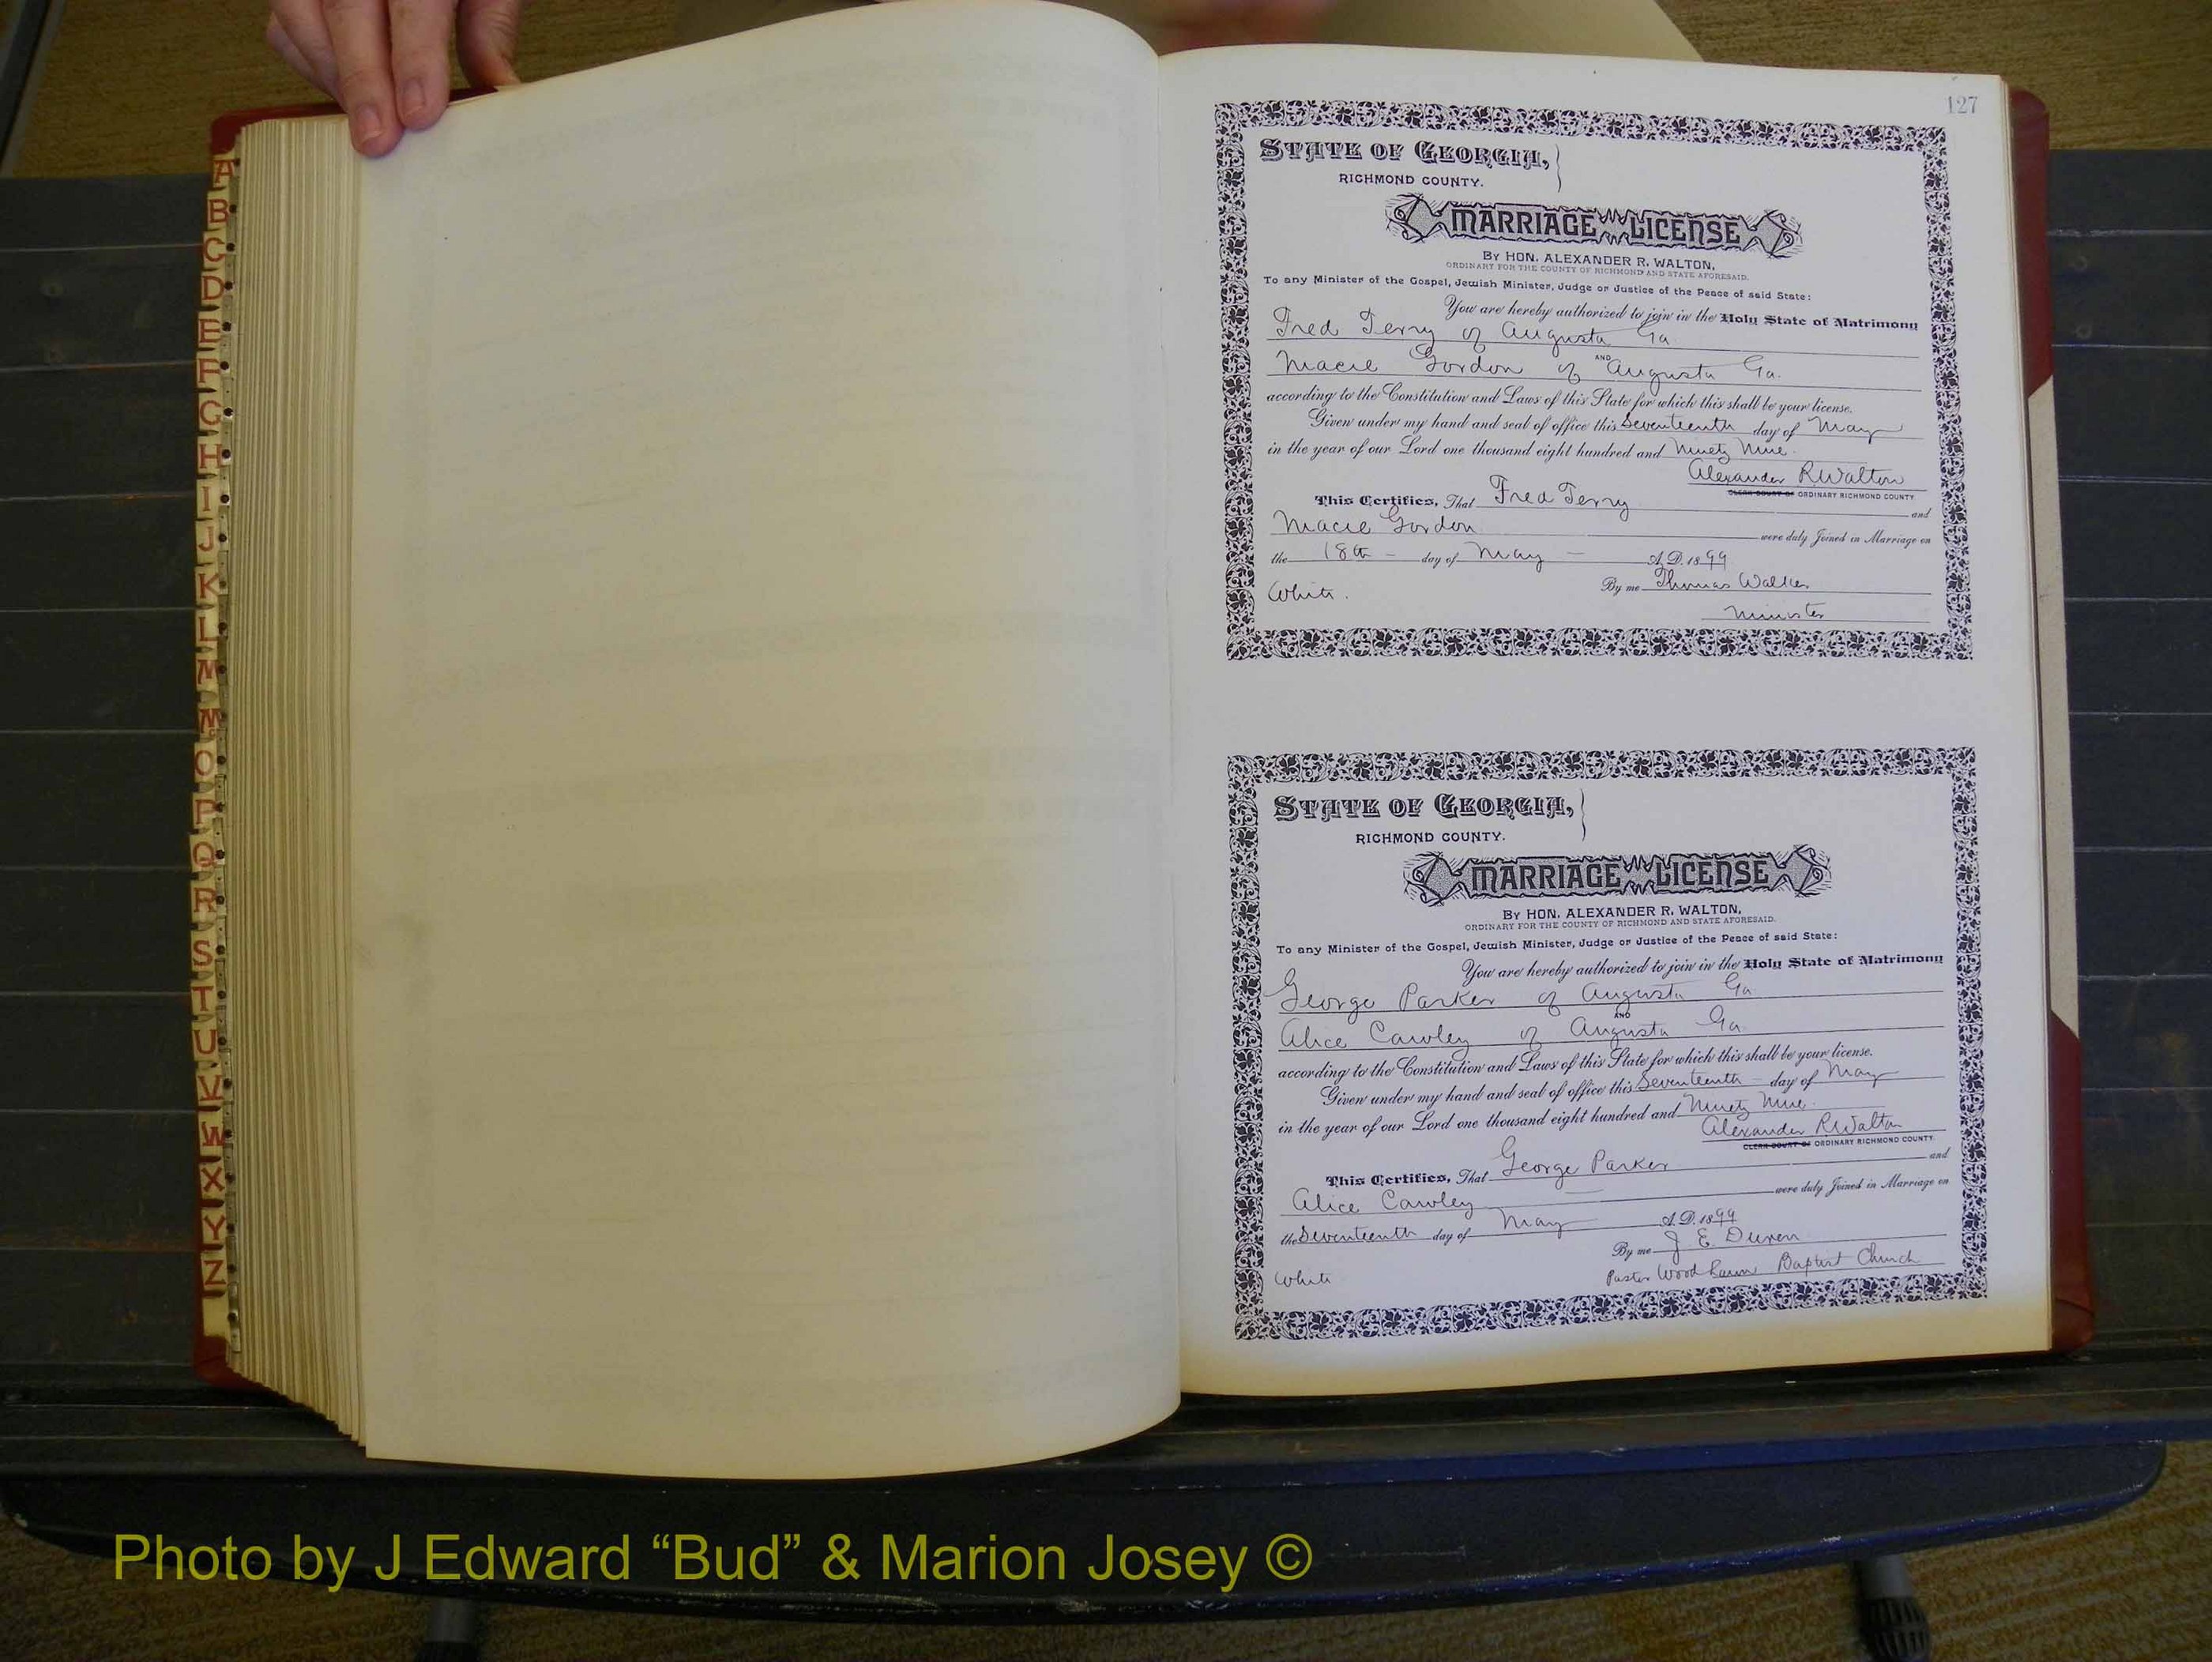 A
B
C
D
E
F
G
H
I
J
K
L
M
Mc
O
P
Q
R
S
T
U
V
W
X
Y
Z
127
STATE OF GEORGIA,
RICHMOND COUNTY.
MARRIAGE LICENSE
BY HON. ALEXANDER R. WALTON,
ORDINARY FOR THE COUNTY OF RICHMOND AND STATE AFORESAID.
To any Minister of the Gospel, Jewish Minister, Judge or Justice of the Peace of said State:
You are hereby authorized to join in the Holy State of Matrimony
Fred Terry of Augusta Ga.
AND
Macie Gordon of Augusta Ga.
according to the Constitution and Laws of this State for which this shall be your license.
Given under my hand and seal of office this Seventeenth day of May
in the year of our Lord one thousand eight hundred and Ninety Nine.
Alexander R Walton
CLERK COURT OF ORDINARY RICHMOND COUNTY
This Certifies, That Fred Terry and
Macie Gordon were duly Joined in Marriage on
the 18th day of May A.D. 1899
By me Thomas Walker
White.
Minister
STATE OF GEORGIA,
RICHMOND COUNTY.
MARRIAGE LICENSE
BY HON. ALEXANDER R. WALTON,
ORDINARY FOR THE COUNTY OF RICHMOND AND STATE AFORESAID.
To any Minister of the Gospel, Jewish Minister, Judge or Justice of the Peace of said State:
You are hereby authorized to join in the Holy State of Matrimony
George Parker of Augusta Ga.
AND
Alice Cawley of Augusta Ga.
according to the Constitution and Laws of this State for which this shall be your license.
Given under my hand and seal of office this Seventeenth day of May
in the year of our Lord one thousand eight hundred and Ninety Nine.
Alexander R Walton
CLERK COURT OF ORDINARY RICHMOND COUNTY.
This Certifies, That George Parker and
Alice Cawley were duly Joined in Marriage on
the Seventeenth day of May A.D. 1899
By me J E
White
Pastor Baptist Church
Photo by J Edward “Bud” & Marion Josey ©